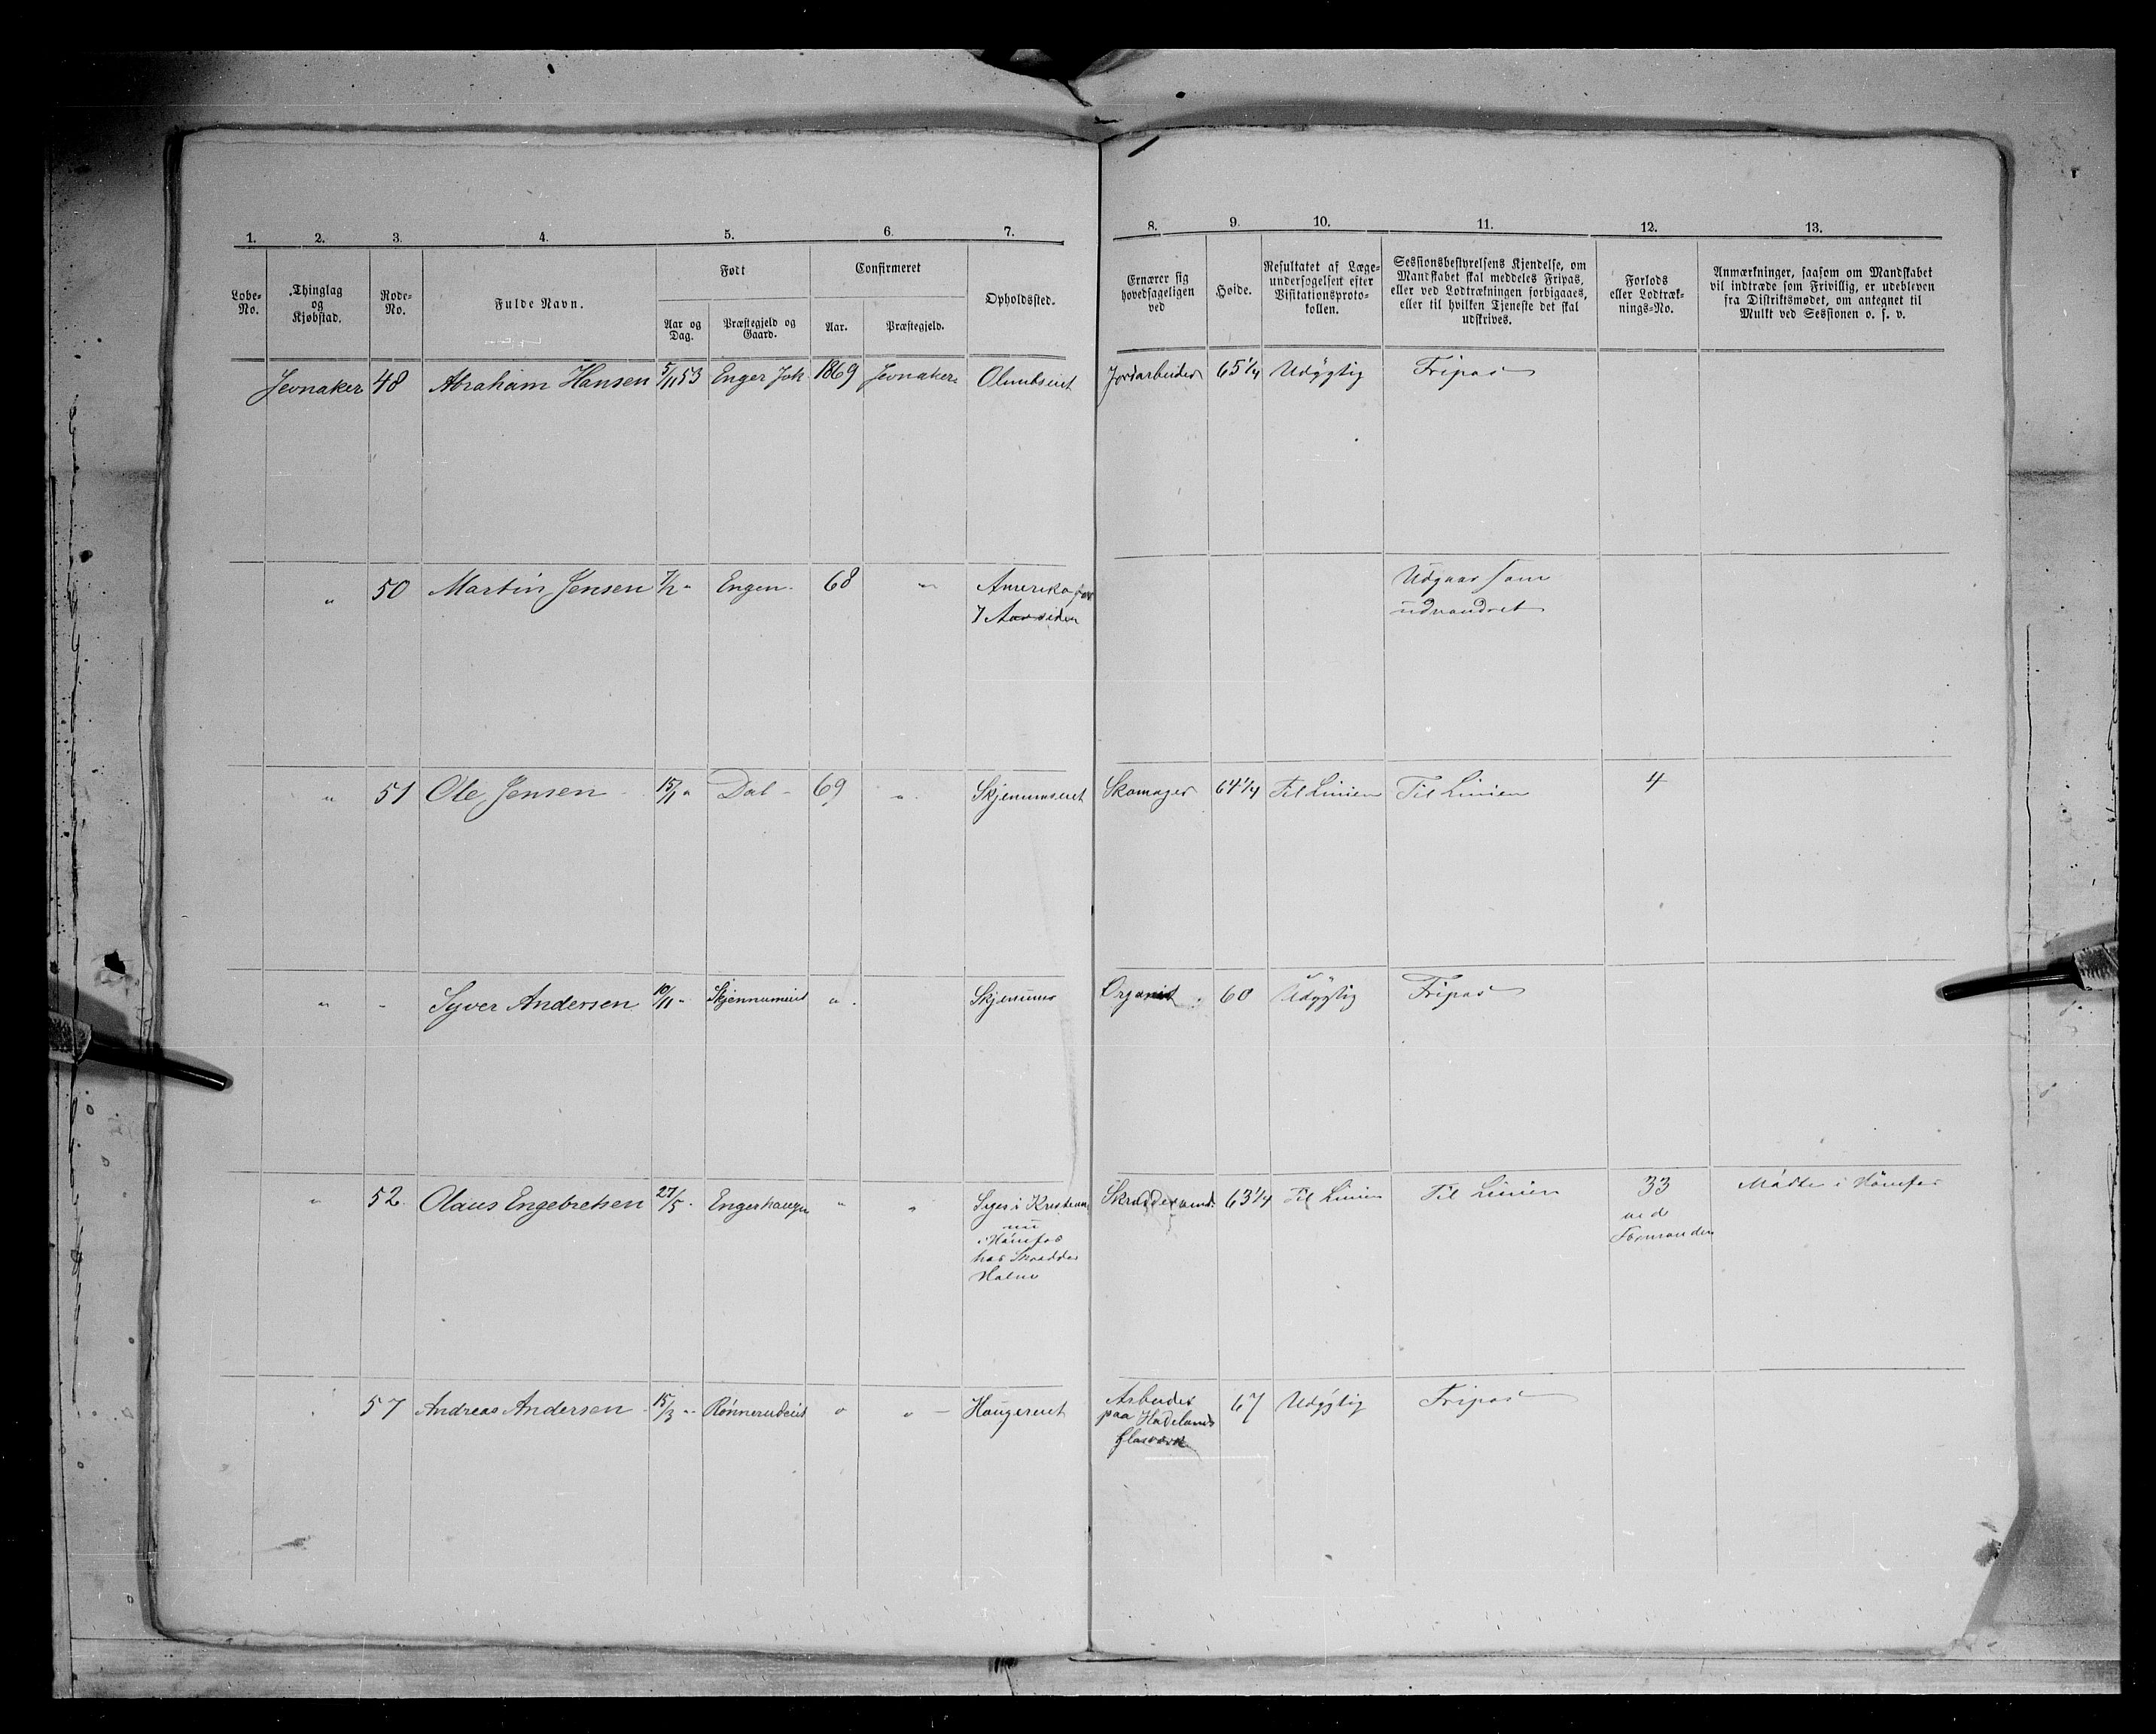 1. 2. 3. 4. 5. 6. 7. 8. 9. 10. 11. 12. 13.
Løbe-No.
Thinglag og Kjøbstad.
Rode-No.
Fulde Navn.
Født
Aar og Dag.
Præstegjeld og Gaard.
Confirmeret
Aar.
Præstegjeld.
Opholdssted.
Ernærer sig hovedsageligen ved
Høide.
Resultatet af Læge-undersøgelsen efter Visitationsproto-kollen.
Sessionsbestyrelsens Kjendelse, om Mandskabet skal meddeles Fripas, eller ved Lodtrækningen forbigaaes, eller til hvilken Tjeneste det skal udskrives.
Forlods eller Lodtræk-nings-No.
Anmærkninger, saasom om Mandskabet vil indtræde som Frivillig, er udebleven fra Distriktsmødet, om antegnet til Mulkt ved Sessionen o. s. v.
Jevnaker 48 Abraham Hansen 5/11 53 Enger 1869 Jevnaker Jordarbeider 65 1/4 Udygtig Fripas
" 50 Martin Jensen " Engen 68 " Amerika for
7 Aar siden
Udgaar som
udvandret
" 51 Ole Jensen 15/1 " Dal 69 " Skjenumseiet Skomager 64 1/4 Til Linien Til Linien 4
" - Syver Andersen 10/11 " Skjennumeiet " Skjenums Organist 60 Udygtig Fripas
" 52 Olaus Engebretsen 27/5 " Engerhaugen " " i
nu
i Hønefos
hos Skrædder
Skræddersvend 63 1/4 Til Linien Til Linien 33
ved
Formanden
Mødte i Hønefos
57 Andreas Andersen 15/3 " Rønnerudeiet " " Haugereiet Arbeider
paa Hadelands
Glasværk
67 Udygtig Fripas